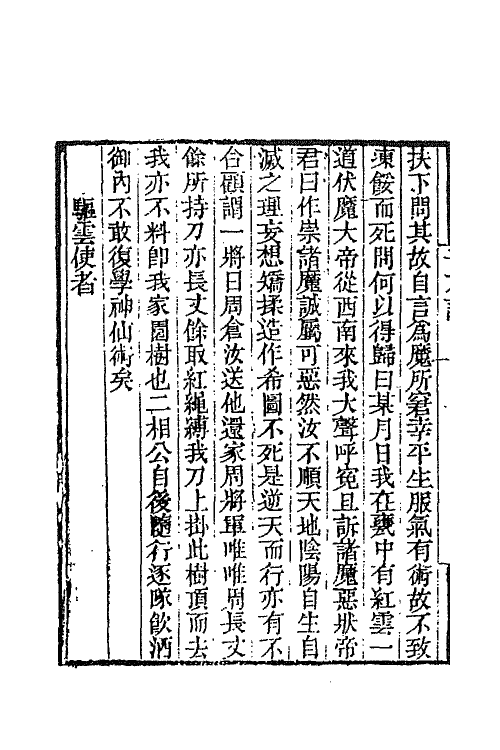 扶下問其故自言為魔所窘幸平生服氣有術故不致
凍餒而死問何以得歸曰某月日我在甕中有紅雲一
道伏魔大帝從西南來我大聲呼冤且訴諸魔惡狀帝
君曰作祟諸魔誠屬可惡然汝不順天地陰陽自生自
滅之理妄想矯揉造作希圖不死是逆天而行亦有不
合顧謂一將曰周倉汝送他還家周將軍唯唯周長丈
餘所持刀亦長丈餘取紅繩縛我刀上掛此樹頂而去
我亦不料即我家園樹也二相公自後隨行逐隊飲酒
御內不敢復學神仙術矣
驅雲使者